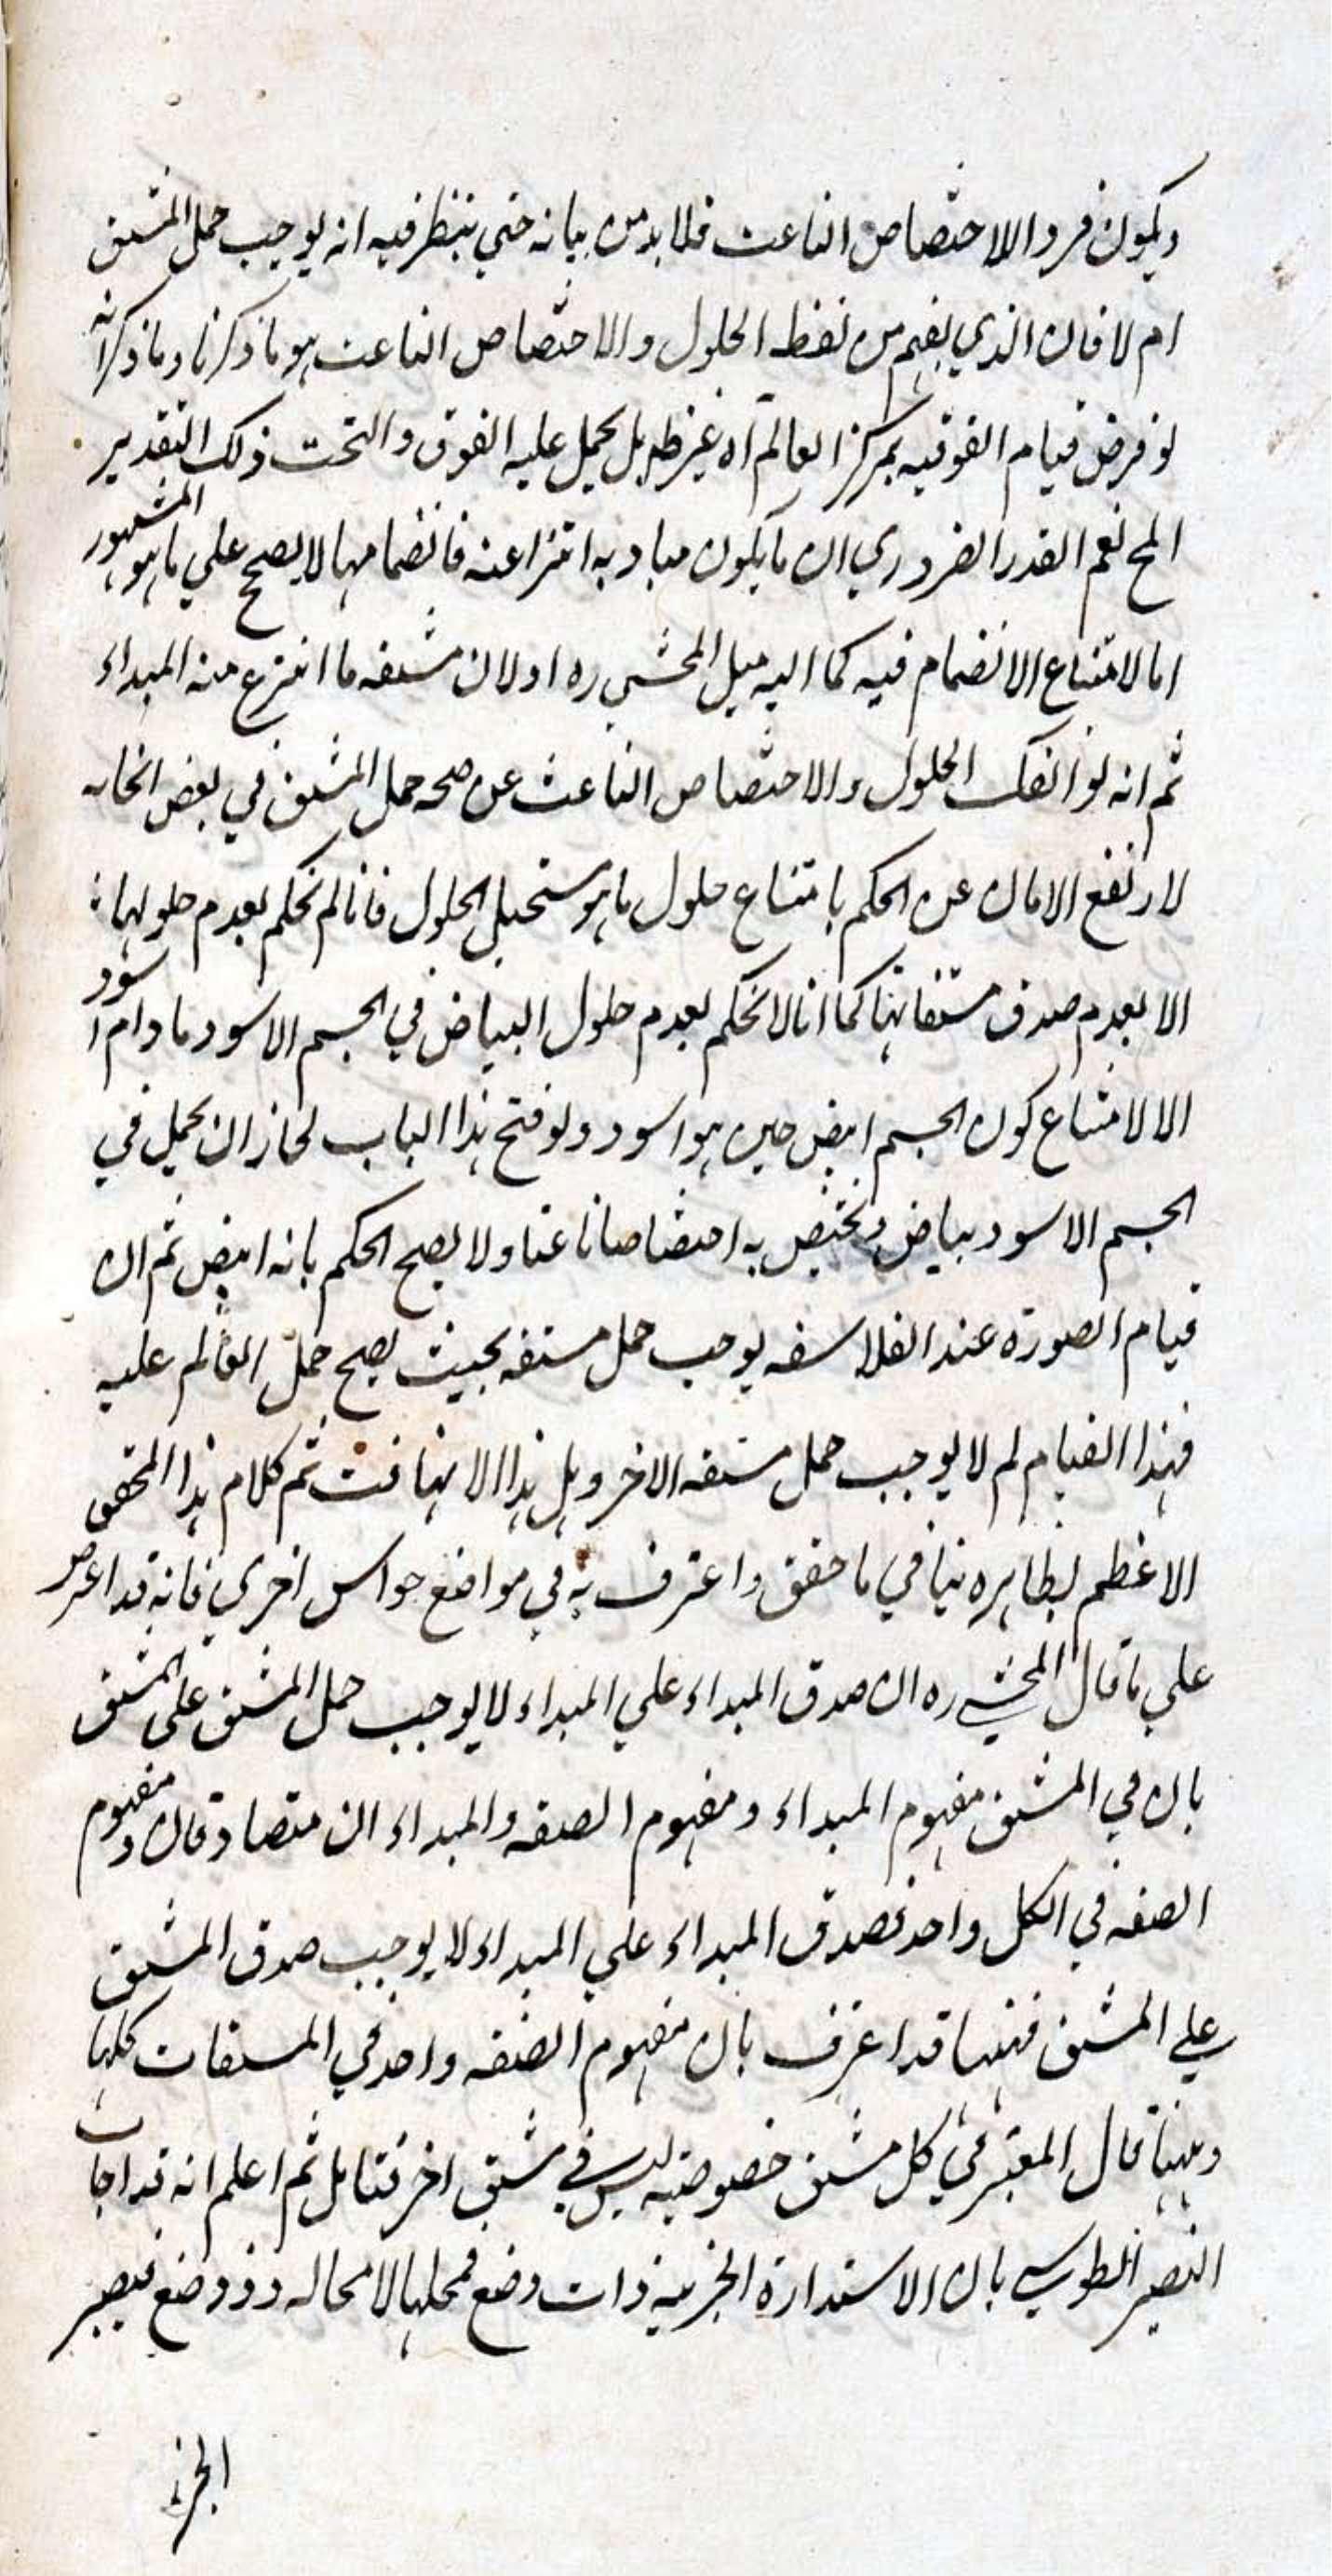 ويكون فرد الاختصاص الناعت فلا بد من بيانه حتي ينظر فيه انه يوجب حمل المشتق
ام لا فان الذي يفهم من لفظ الحلول والاختصاص الناعت هو ما ذكرنا وما ذكر انه
لو فرض قيام الفوقيه بمركز العالم آه غير ظ بل يحمل عليه الفوق والتحت ذلك التقدير
المح نعم القدر الضروري ان ما يكون مباديه انتزاعيه فانضمامها لا يصح علي ما هو المشهور
اما لامتناع الانضمام فيه كما اليه ميل المحشي ره او لان مشتقه ما انتزع منه المبداء
ثم انه لو انفك الحلول والاختصاص الناعت عن صحه حمل المشتق في بعض انحائه
لارتفع الامان عن الحكم بامتناع حلول ما هو مستحيل الحلول فانا لم نحكم بعدم حلولها
الا بعدم صدق مشتقاتها كما انا لا نحكم بعدم حلول البياض في الجسم الاسود ما دام اسود
الا لامتناع كون الجسم ابيض حين هو اسود ولو فتح هذا الباب لجاز ان يحل في
الجسم الاسود بياض ويختص به اختصاصا ناعتا ولا يصح الحكم بانه ابيض ثم ان
قيام الصورة عند الفلاسفه يوجب حمل مشتقه بحيث يصح حمل العالم عليه
فهذا القيام لم لا يوجب حمل مشتقه الاخر وهل هذا الا تهافت ثم كلام هذا المحقق
الاعظم بظاهره ينافي ما حقق واعترف به في مواضع حواش اخري فانه قد اعترض
علي ما قال المحشي ره ان صدق المبداء علي المبداء لا يوجب حمل المشتق علي المشتق
بان في المشتق مفهوم المبداء ومفهوم الصفه والمبداء ان متصادقان ومفهوم
الصفه في الكل واحد فصدق المبداء علي المبداء لا يوجب صدق المشتق
علي المشتق فههنا قد اعترف بان مفهوم الصفه واحد في المشتقات كلها
وههنا قال المعتبر في كل مشتق خصوصيه ليس في مشتق اخر فتامل ثم اعلم انه قد اجاب
النصير الطوسي بان الاستدارة الجزئيه ذات وضع فمحلها لا محاله ذو وضع فيصير
الجزء